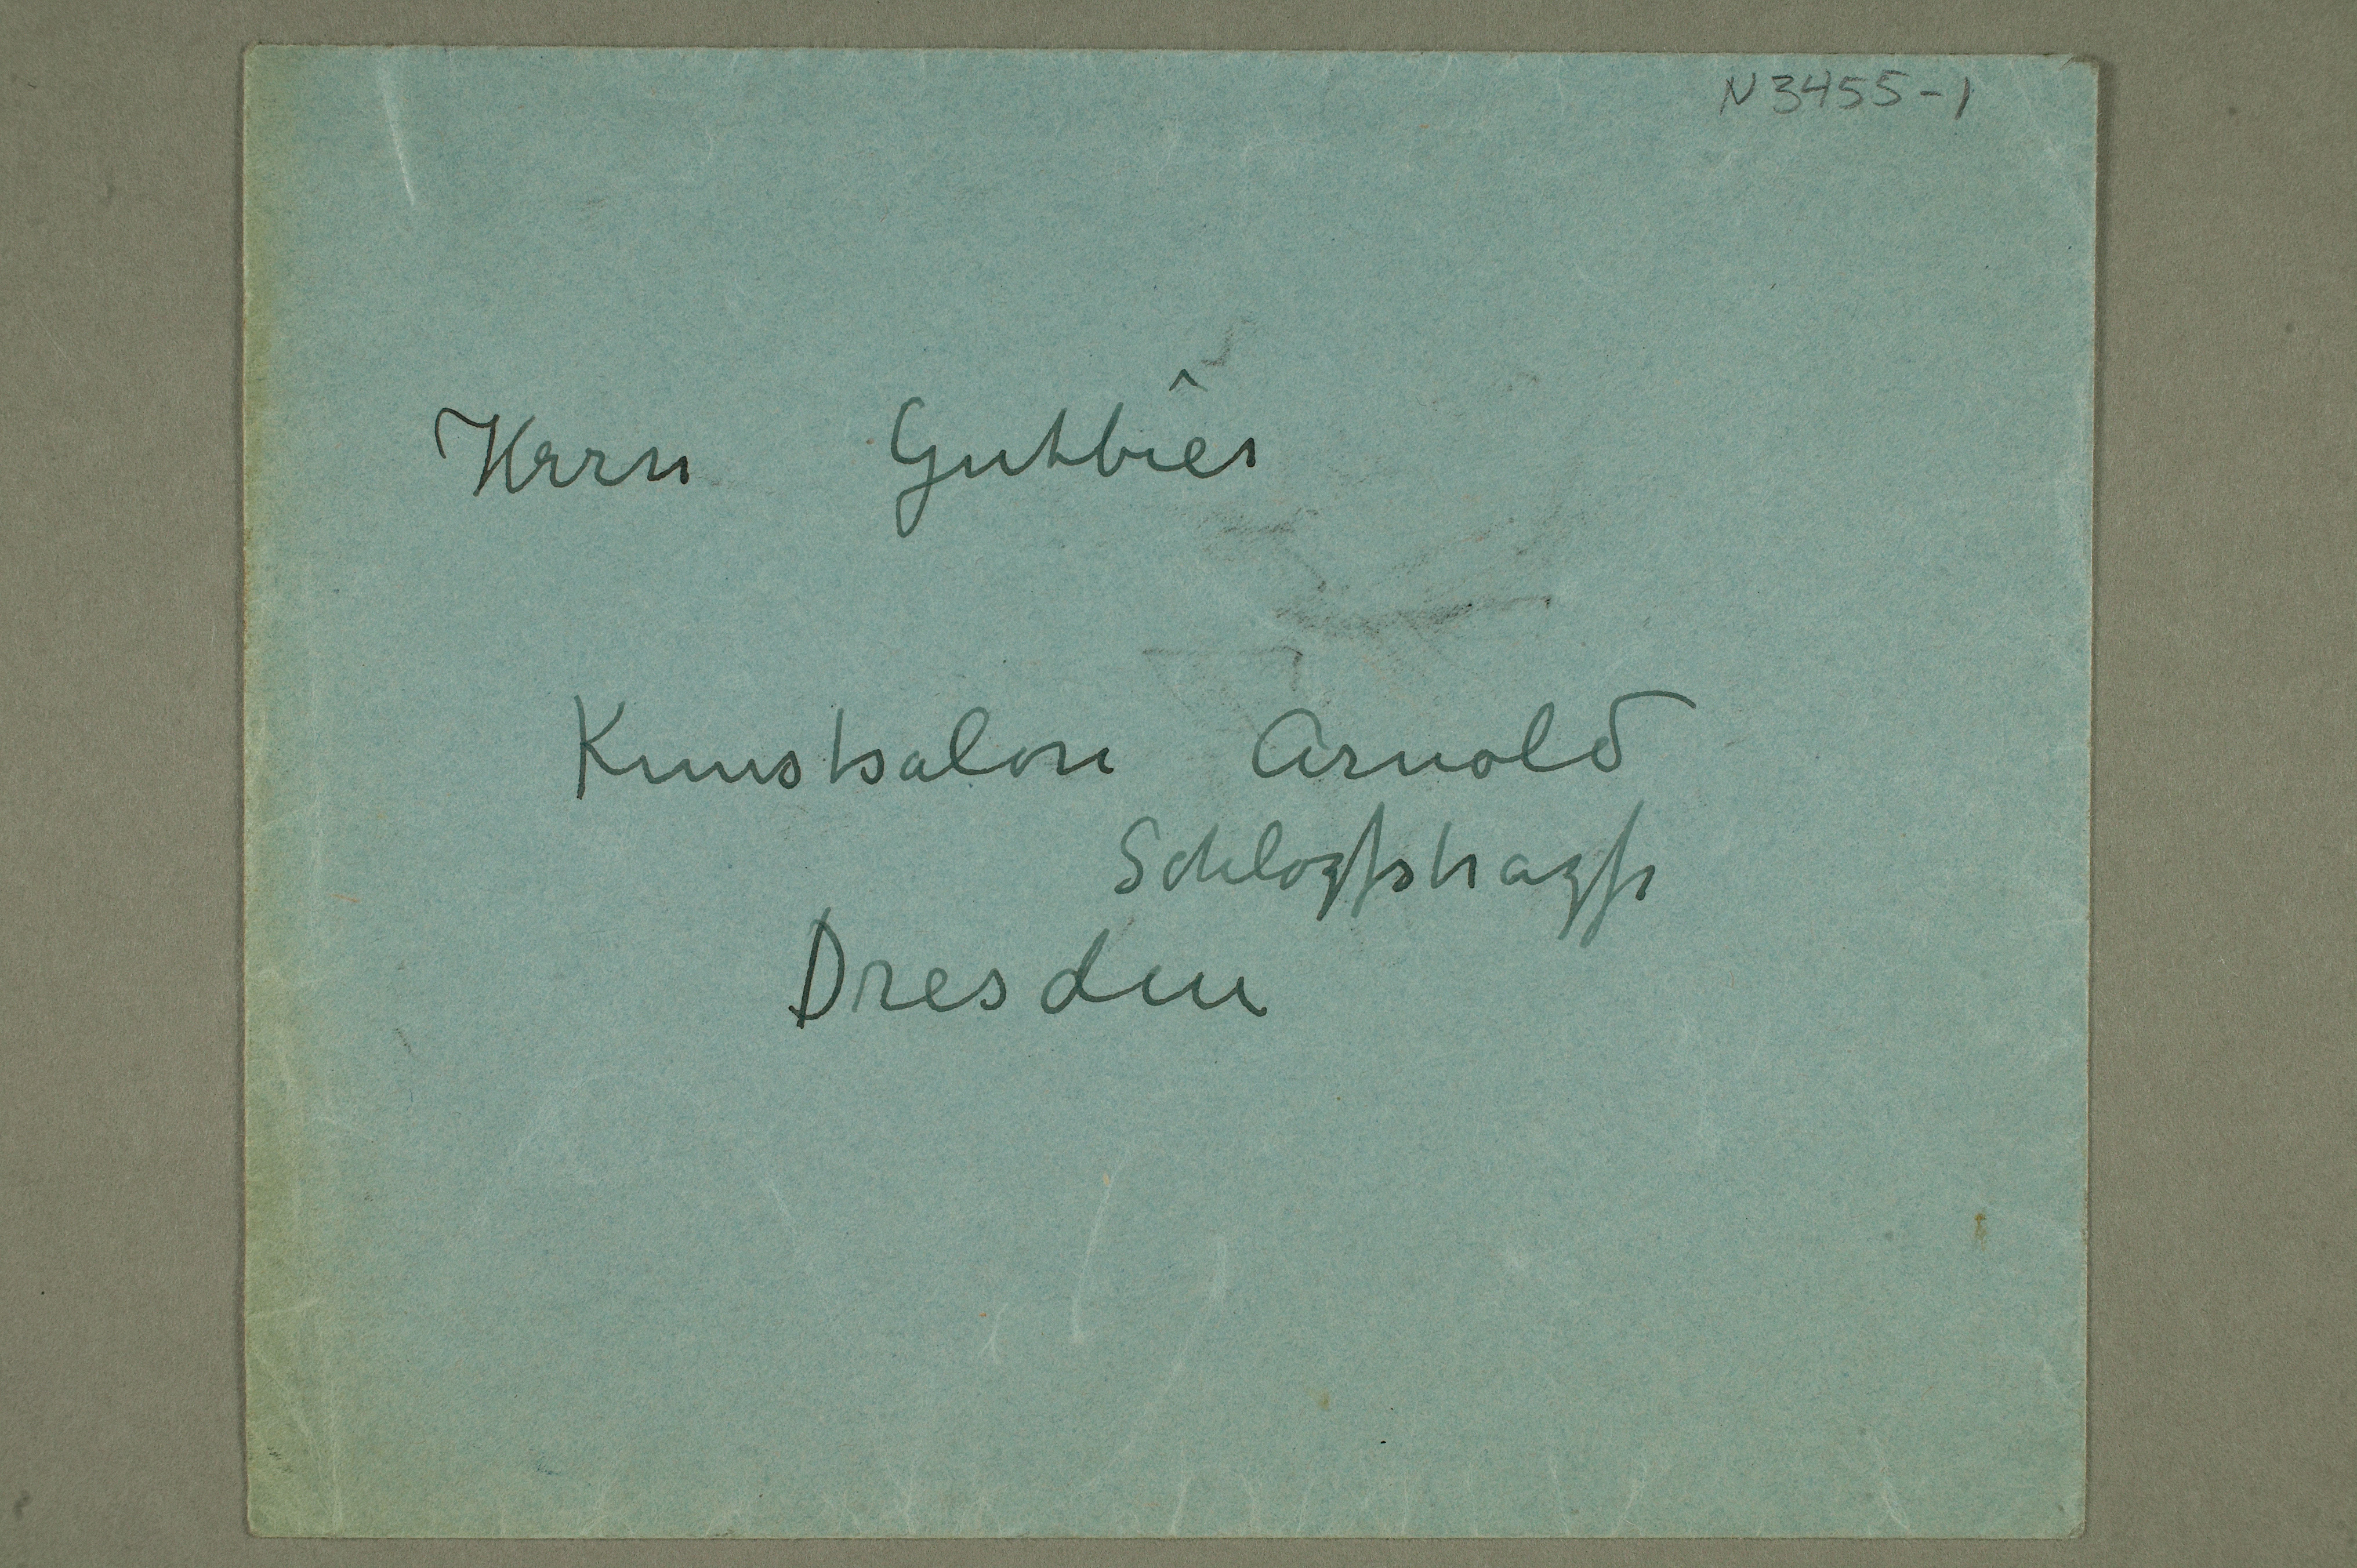 N 3455-1
Herrn Gutbier
Kunstsalon Arnold
Schloßstraße
Dresden